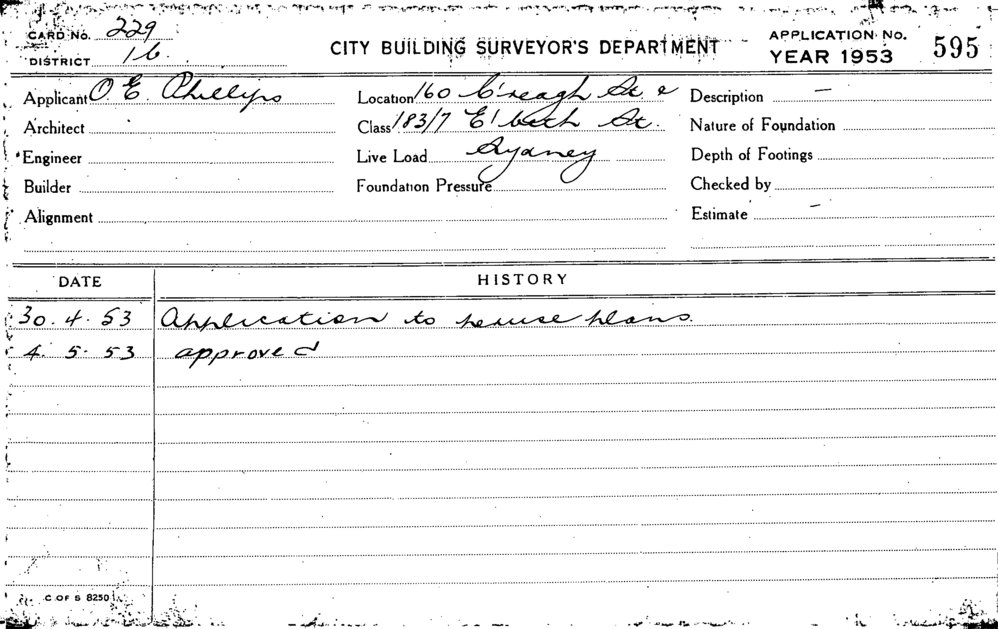 CARD No. 229
DISTRICT 16
CITY BUILDING SURVEYOR'S DEPARTMENT
APPLICATION No.
YEAR 1953
595
Applicant O. E. Phillips
Architect
Engineer
Builder
Alignment
Location 160 C'reagh St. &
Class 183/7 E'beth St.
Live Load Sydney
Foundation Pressure
Description –
Nature of Foundation
Depth of Footings
Checked by
Estimate –
DATE HISTORY
30.4.53 Application to peruse plans.
4.5.53 approved
C OF S 8250